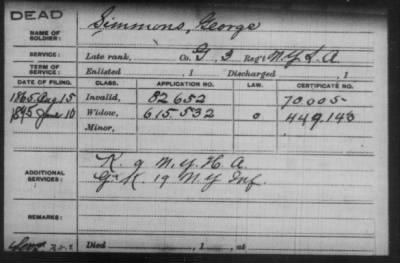 DEAD
NAME OF SOLDIER: Simmons, George
SERVICE: Late rank, Co. G, 3 Reg't N.Y. L. A
TERM OF SERVICE: Enlisted , 1 Discharged , 1
DATE OF FILING. CLASS. APPLICATION NO. LAW. CERTIFICATE NO.
1865 Aug 15 Invalid, 82652 70.005
1895 June 10 Widow, 615.532 o 449.143
Minor,
ADDITIONAL SERVICES: K. 9 N.Y. H. A.
G & K. 19 N.Y. Inf.
REMARKS:
Died , 1 , at